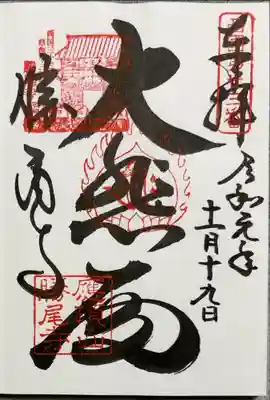 奉拝
令和元年
十一月十九日
大悲殿
勝尾寺
應頂山
勝尾寺